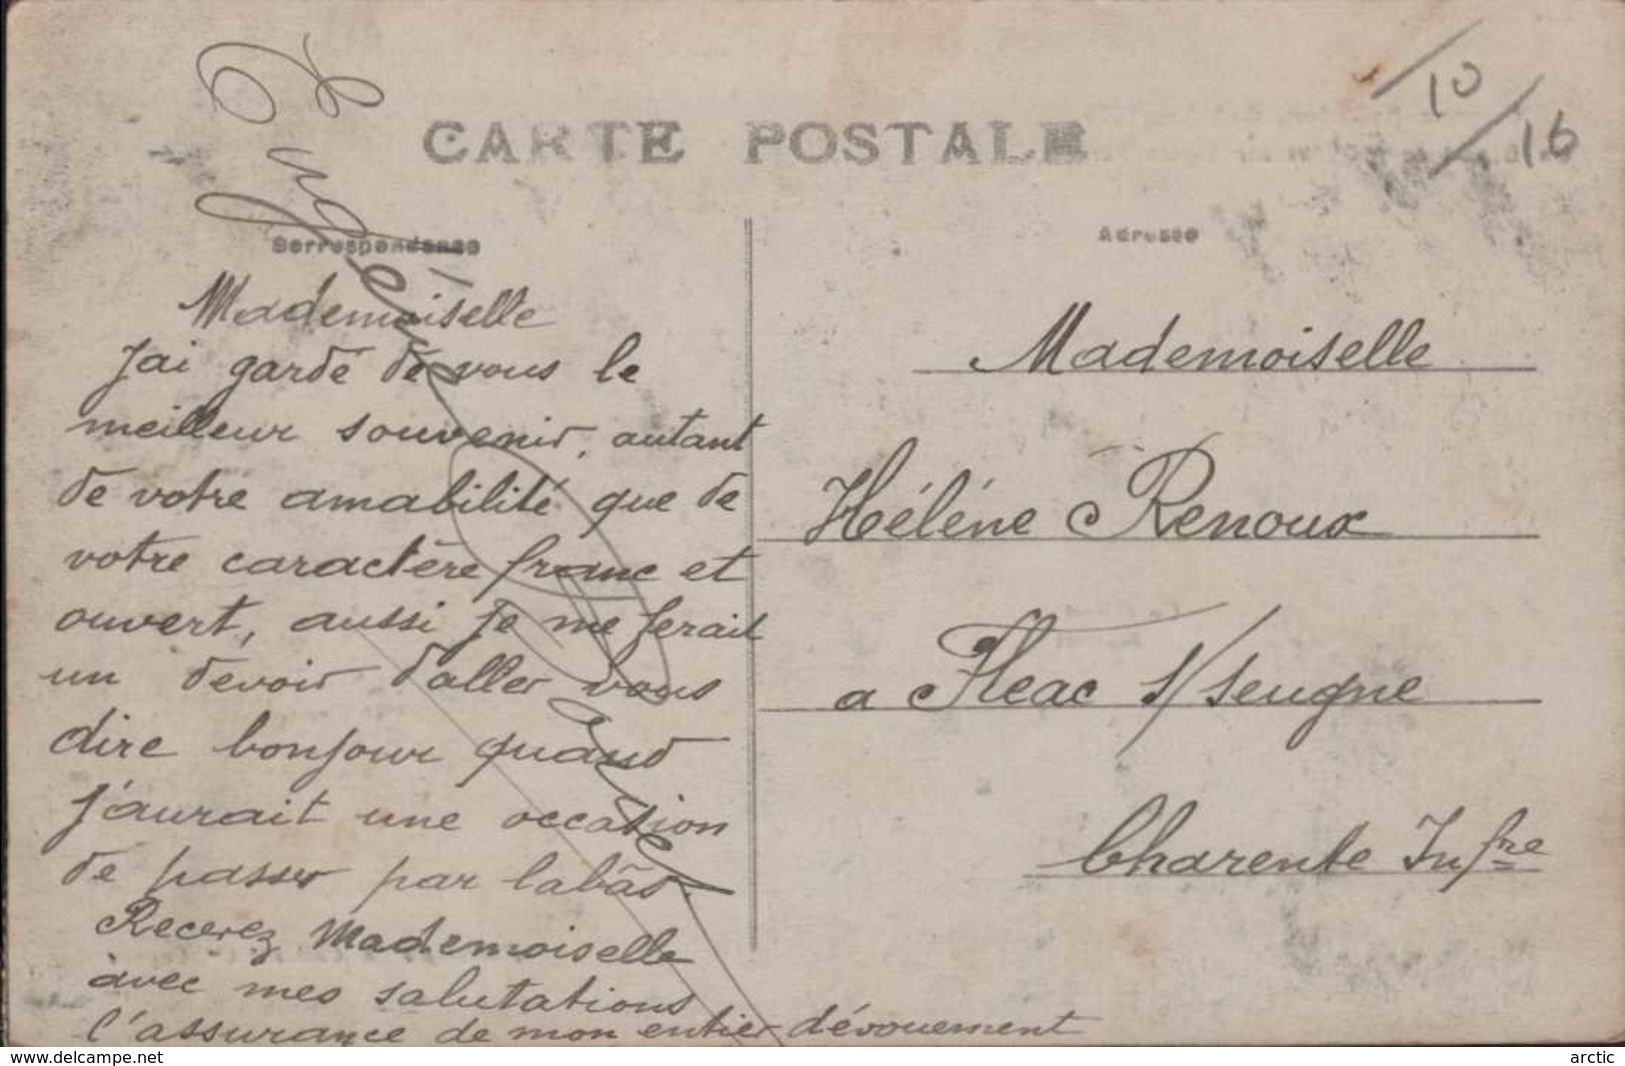 CARTE POSTALE
10
16
Correspondance
Mademoiselle
J'ai gardé de vous le
meilleur souvenir, autant
de votre amabilité que de
votre caractère franc et
ouvert, aussi je me ferait
un devoir d'aller vous
dire bonjour quand
j'aurait une occasion
de passer par labâs.
Recevez Mademoiselle
avec mes salutations
l'assurance de mon entier dévouement
Adresse
Mademoiselle
Hélène Renoux
a Fleac s/ seugne
Charente Infre
www.delcampe.net
arctic